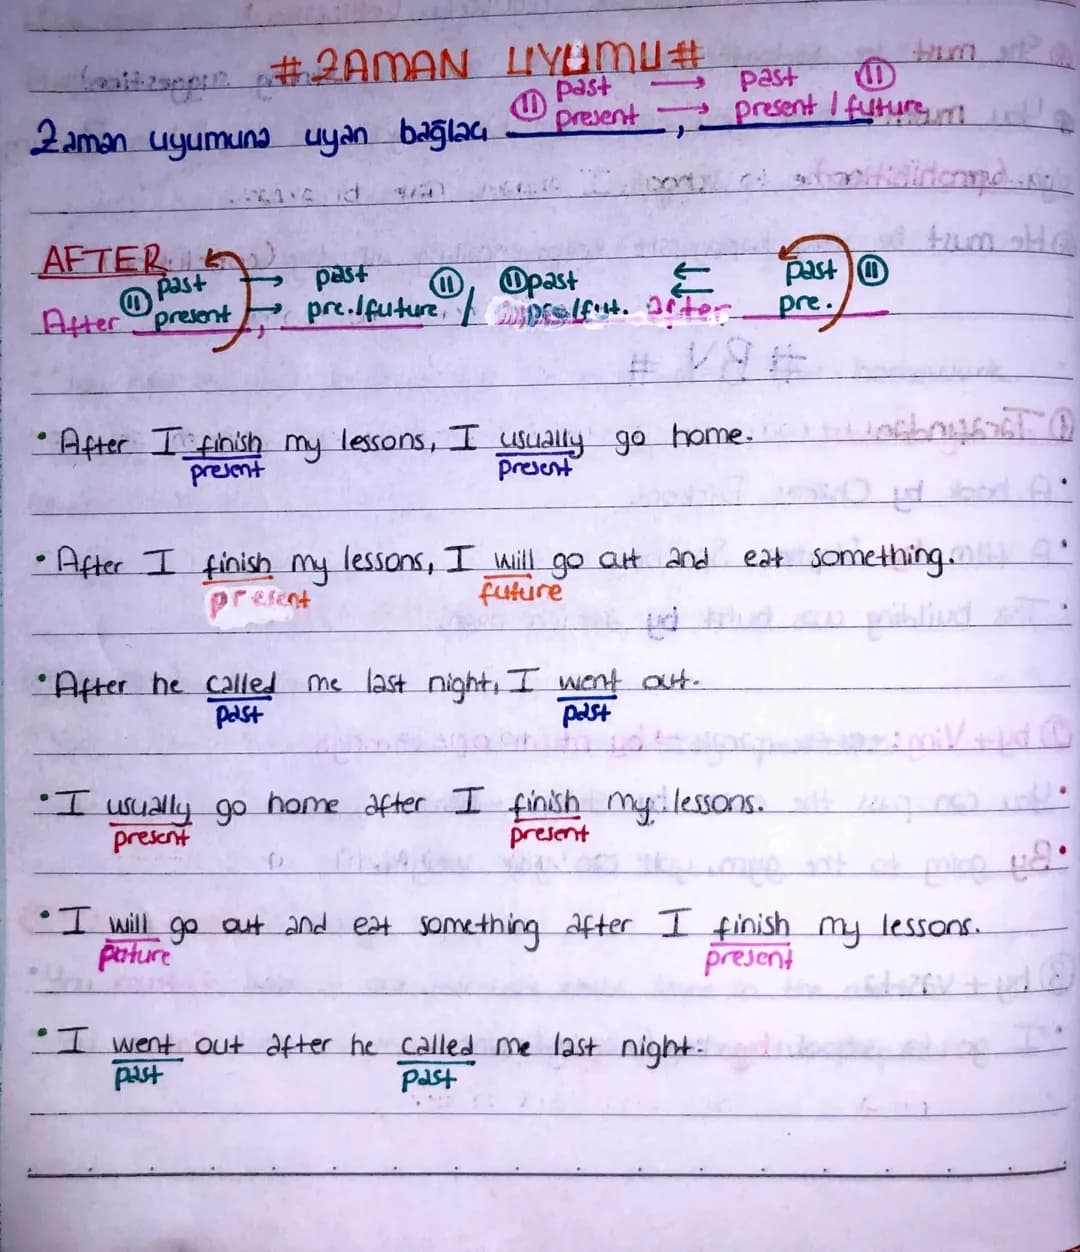 # ZAMAN UYUMU #
① past → past ⑪
present → present / future
Zaman uyumuna uyan bağlaç ______, ______
AFTER
⑪ past → past ⑪, ① past ⇐ past ⑪
After present → , pre./future / pre/fut. after pre.
• After I finish my lessons, I usually go home.
present present
• After I finish my lessons, I will go out and eat something.
present future
• After he called me last night, I went out.
past past
• I usually go home after I finish my lessons.
present present
• I will go out and eat something after I finish my lessons.
future present
• I went out after he called me last night.
past past